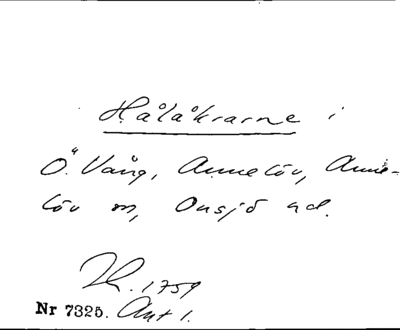 Hålåkrarne i
Ö. Vång, Annelöv, Anne-
löv sn, Onsjö hd.
Lk. 1759
Nr 7325. Akt 1.